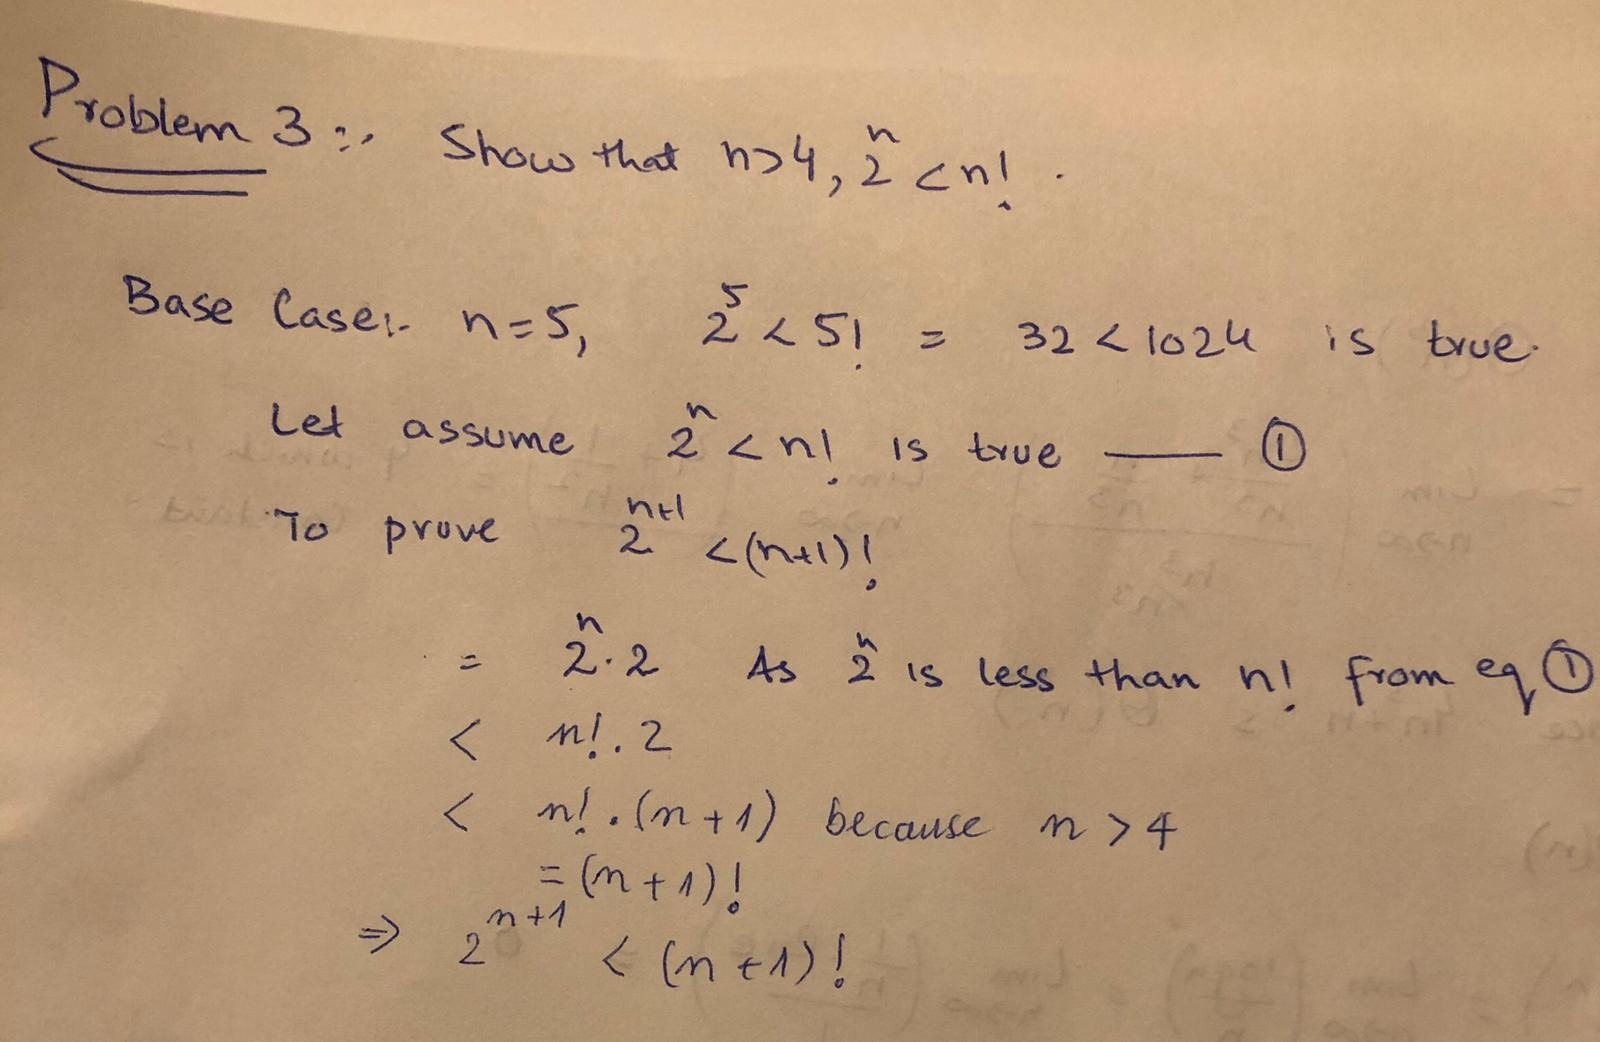 Problem 3 :- Show that n>4, 2^n < n! .
Base Case:- n=5, 2^5 < 5! = 32 < 1024 is true.
Let assume 2^n < n! is true —— ①
To prove 2^(n+1) < (n+1)!
= 2^n . 2 As 2^n is less than n! from eq ①
< n! . 2
< n! . (n+1) because n > 4
= (n+1)!
⇒ 2^(n+1) < (n+1)!